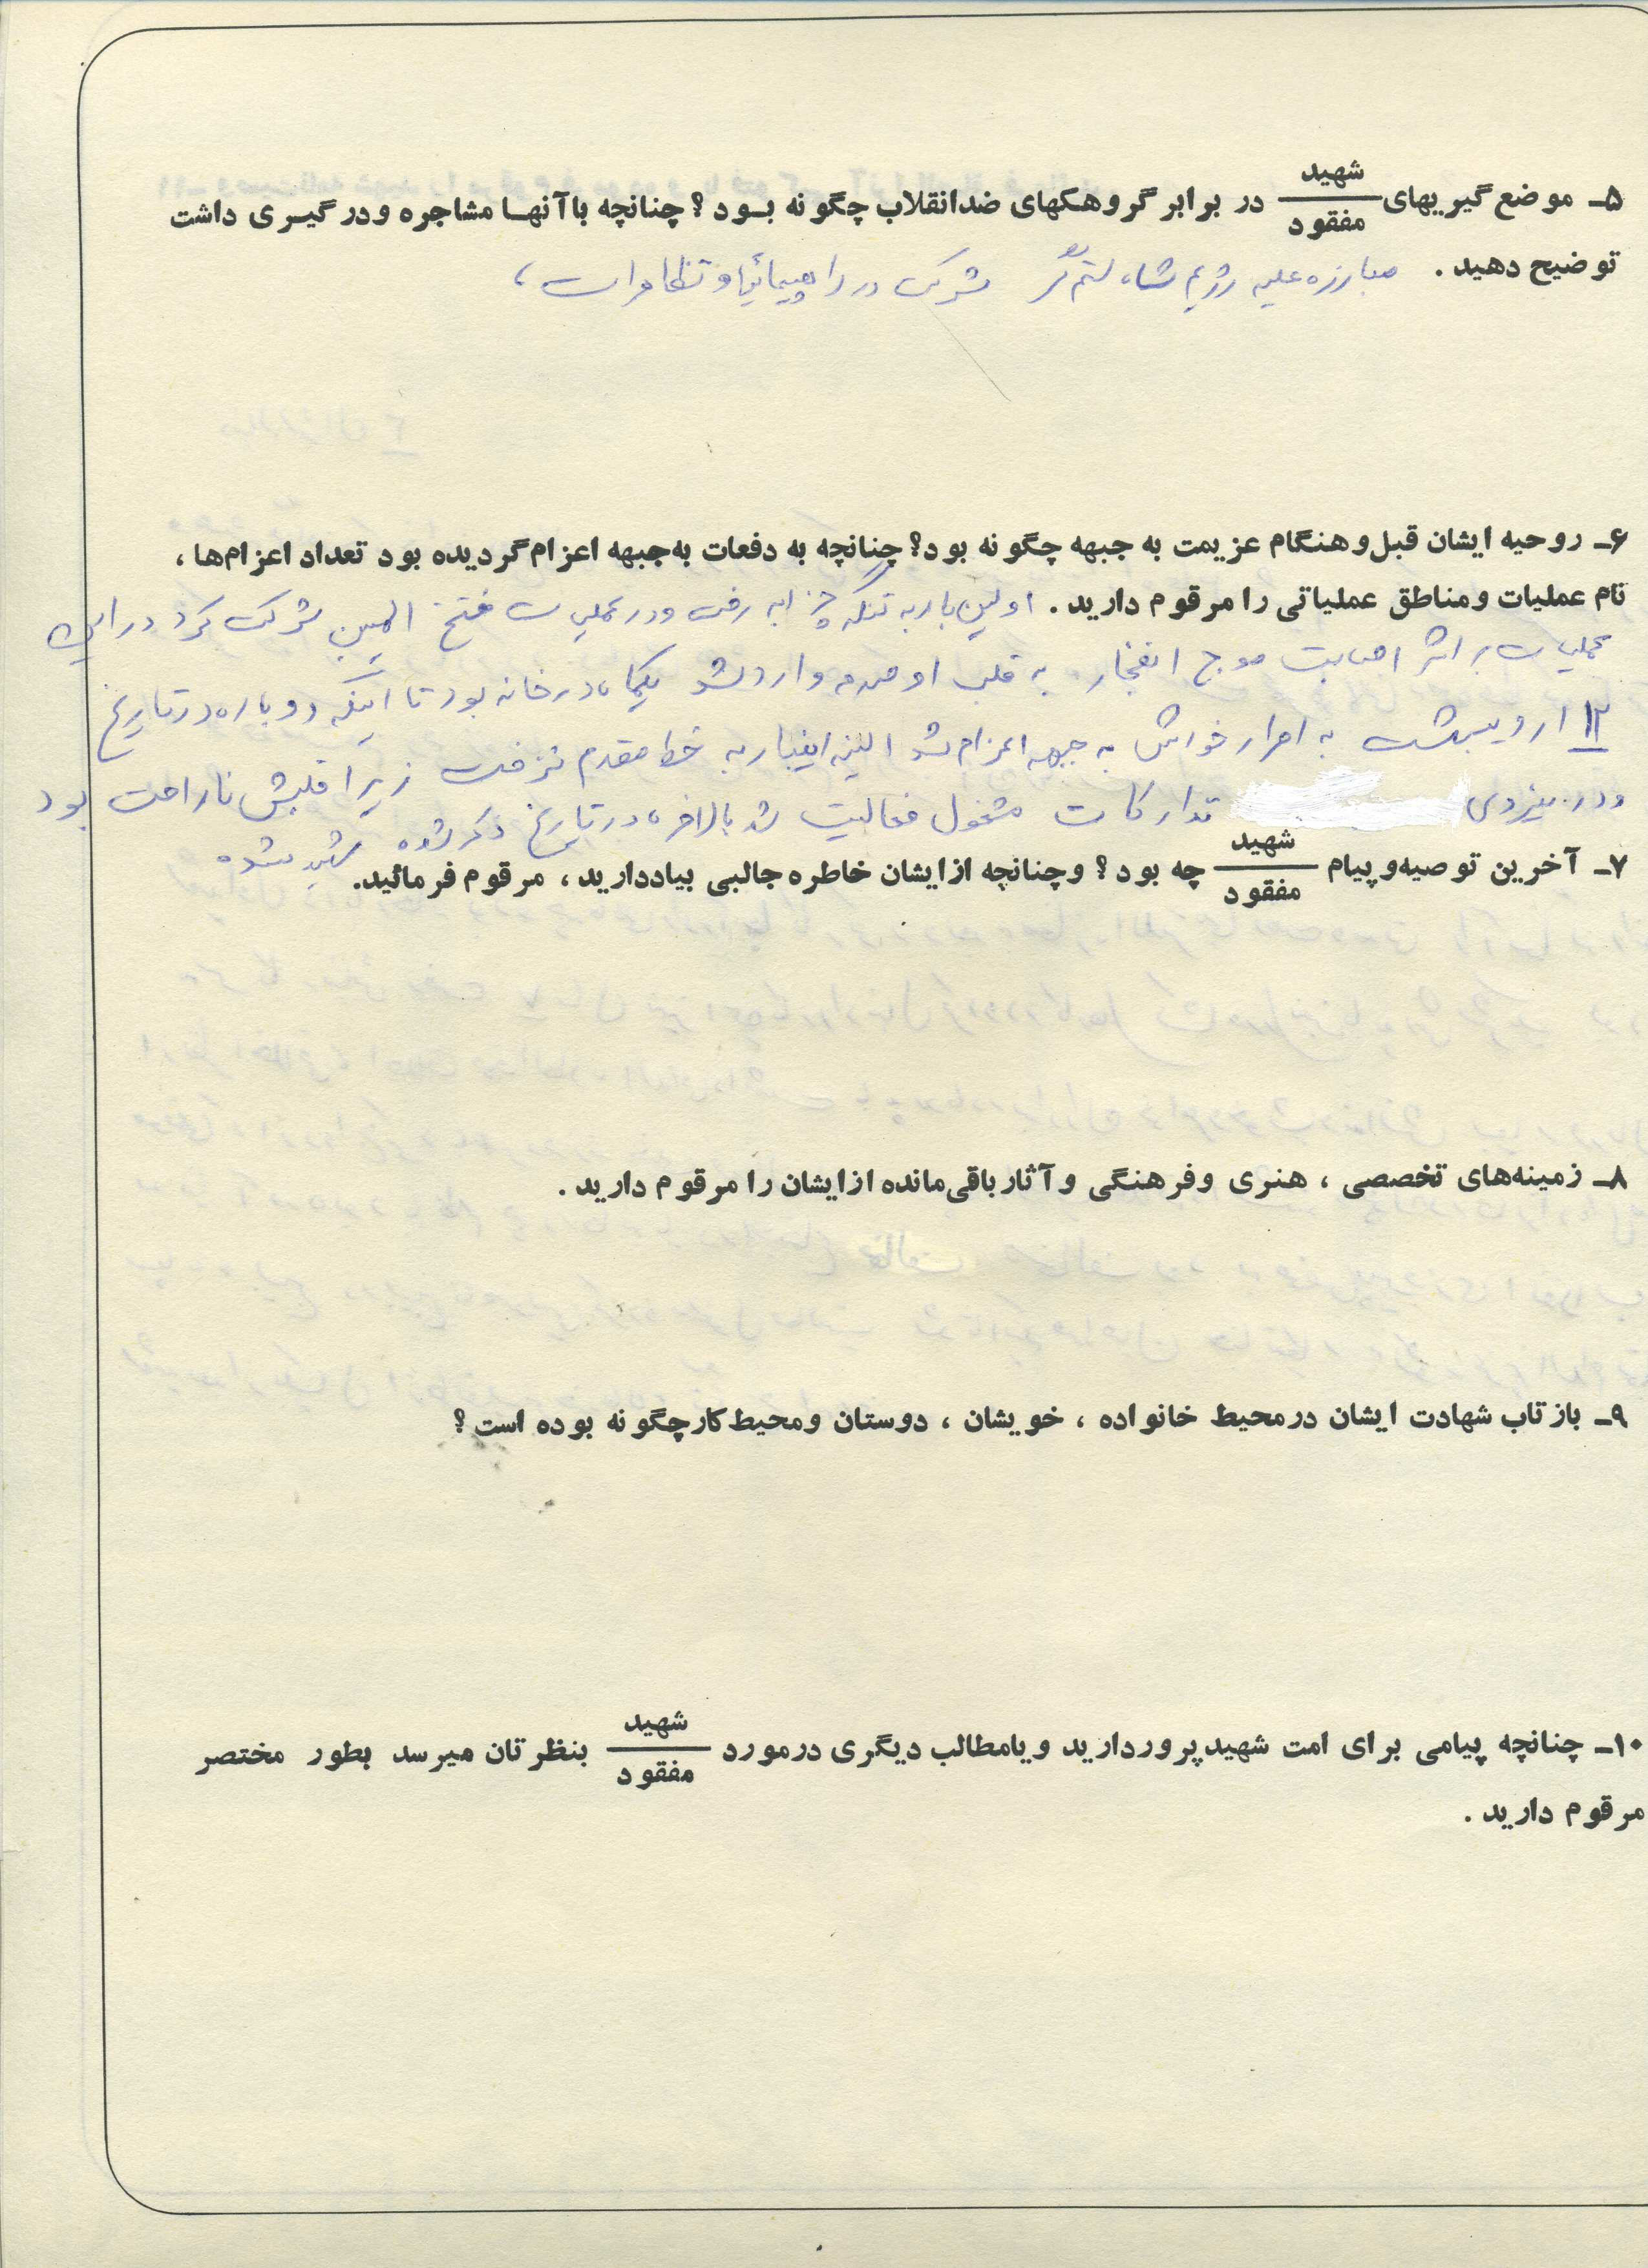 ۵ـ موضع‌گیریهای شهید / مفقود در برابر گروهکهای ضدانقلاب چگونه بود؟ چنانچه باآنها مشاجره ودرگیری داشت
توضیح دهید. مبارزه علیه رژیم شاه ستمگر شرکت در راهپیمائیها و تظاهرات،
۶ـ روحیه ایشان قبل‌وهنگام عزیمت به جبهه چگونه بود؟ چنانچه به دفعات به‌جبهه اعزام‌گردیده بود تعداد اعزام‌ها،
نام عملیات ومناطق عملیاتی را مرقوم دارید. اولین بار به تنگه چزابه رفت ودر عملیات فتح المبین شرکت کرد در این
عملیات بر اثر اصابت موج انفجار به قلب او صدمه وارد شد یکماه در خانه بود تا اینکه دوباره در تاریخ
۱۲ اردیبهشت به اصرار خودش به جبهه اعزام شد البته اینبار به خط مقدم نرفت زیرا قلبش ناراحت بود
ودر نیروی تدارکات مشغول فعالیت شد بالاخره در تاریخ ذکر شده شهید شده
۷ـ آخرین توصیه‌وپیام شهید / مفقود چه بود؟ وچنانچه ازایشان خاطره جالبی بیاددارید، مرقوم فرمائید.
۸ـ زمینه‌های تخصصی، هنری وفرهنگی وآثارباقی‌مانده ازایشان را مرقوم دارید.
۹ـ بازتاب شهادت ایشان درمحیط خانواده، خویشان، دوستان ومحیط‌کارچگونه بوده است؟
۱۰ـ چنانچه پیامی برای امت شهیدپرورداريد ویامطالب دیگری درمورد شهید / مفقود بنظرتان میرسد بطور مختصر
مرقوم دارید.